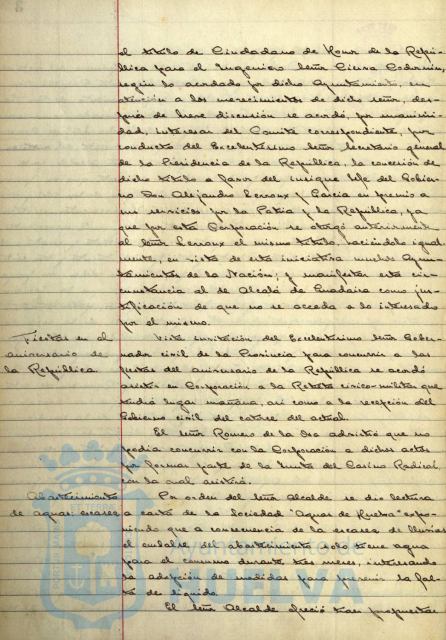 el título de Ciudadano de Honor de la Repú-
blica para el Ingeniero Señor Cierva Codorniu,
según lo acordado por dicho Ayuntamiento, en
atención a los merecimientos de dicho señor, des-
pués de breve discusión se acordó, por unanimi-
dad, interesar del Comité correspondiente, por
conducto del Excelentísimo Señor Secretario general
de la Presidencia de la República, la concesión de
dicho título a favor del insigne Jefe del Gobier-
no Don Alejandro Lerroux y García en premio a
sus servicios por la Patria y la República, ya
que por esta Corporación se otorgó anteriormente
al Señor Lerroux el mismo título, haciéndolo igual-
mente, en vista de esta iniciativa muchos Ayun-
tamientos de la Nación; y manifestar esta cir-
cunstancia al de Alcalá de Guadaira como jus-
tificación de que no se acceda a lo interesado
por el mismo.
Fiestas en el
aniversario de
la República
Vista invitación del Excelentísimo Señor Gober-
nador civil de la Provincia para concurrir a las
fiestas del aniversario de la República se acordó
asistir en Corporación a la Retreta cívico-militar que
tendrá lugar mañana, así como a la recepción del
Gobierno civil del catorce del actual.
El Señor Romero de la Osa advirtió que no
podía concurrir con la Corporación a dichos actos
por formar parte de la Junta del Casino Radical,
con la cual asistirá.
Abastecimiento
de aguas escasez
Por orden del Señor Alcalde se dio lectura
a carta de la Sociedad "Aguas de Huelva" expo-
niendo que a consecuencia de la escasez de lluvias
el embalse del abastecimiento solo tiene agua
para el consumo durante tres meses, interesando
la adopción de medidas para prevenir la fal-
ta de líquido.
El Señor Alcalde ofreció traer propuestas
Ayuntamiento de
HUELVA